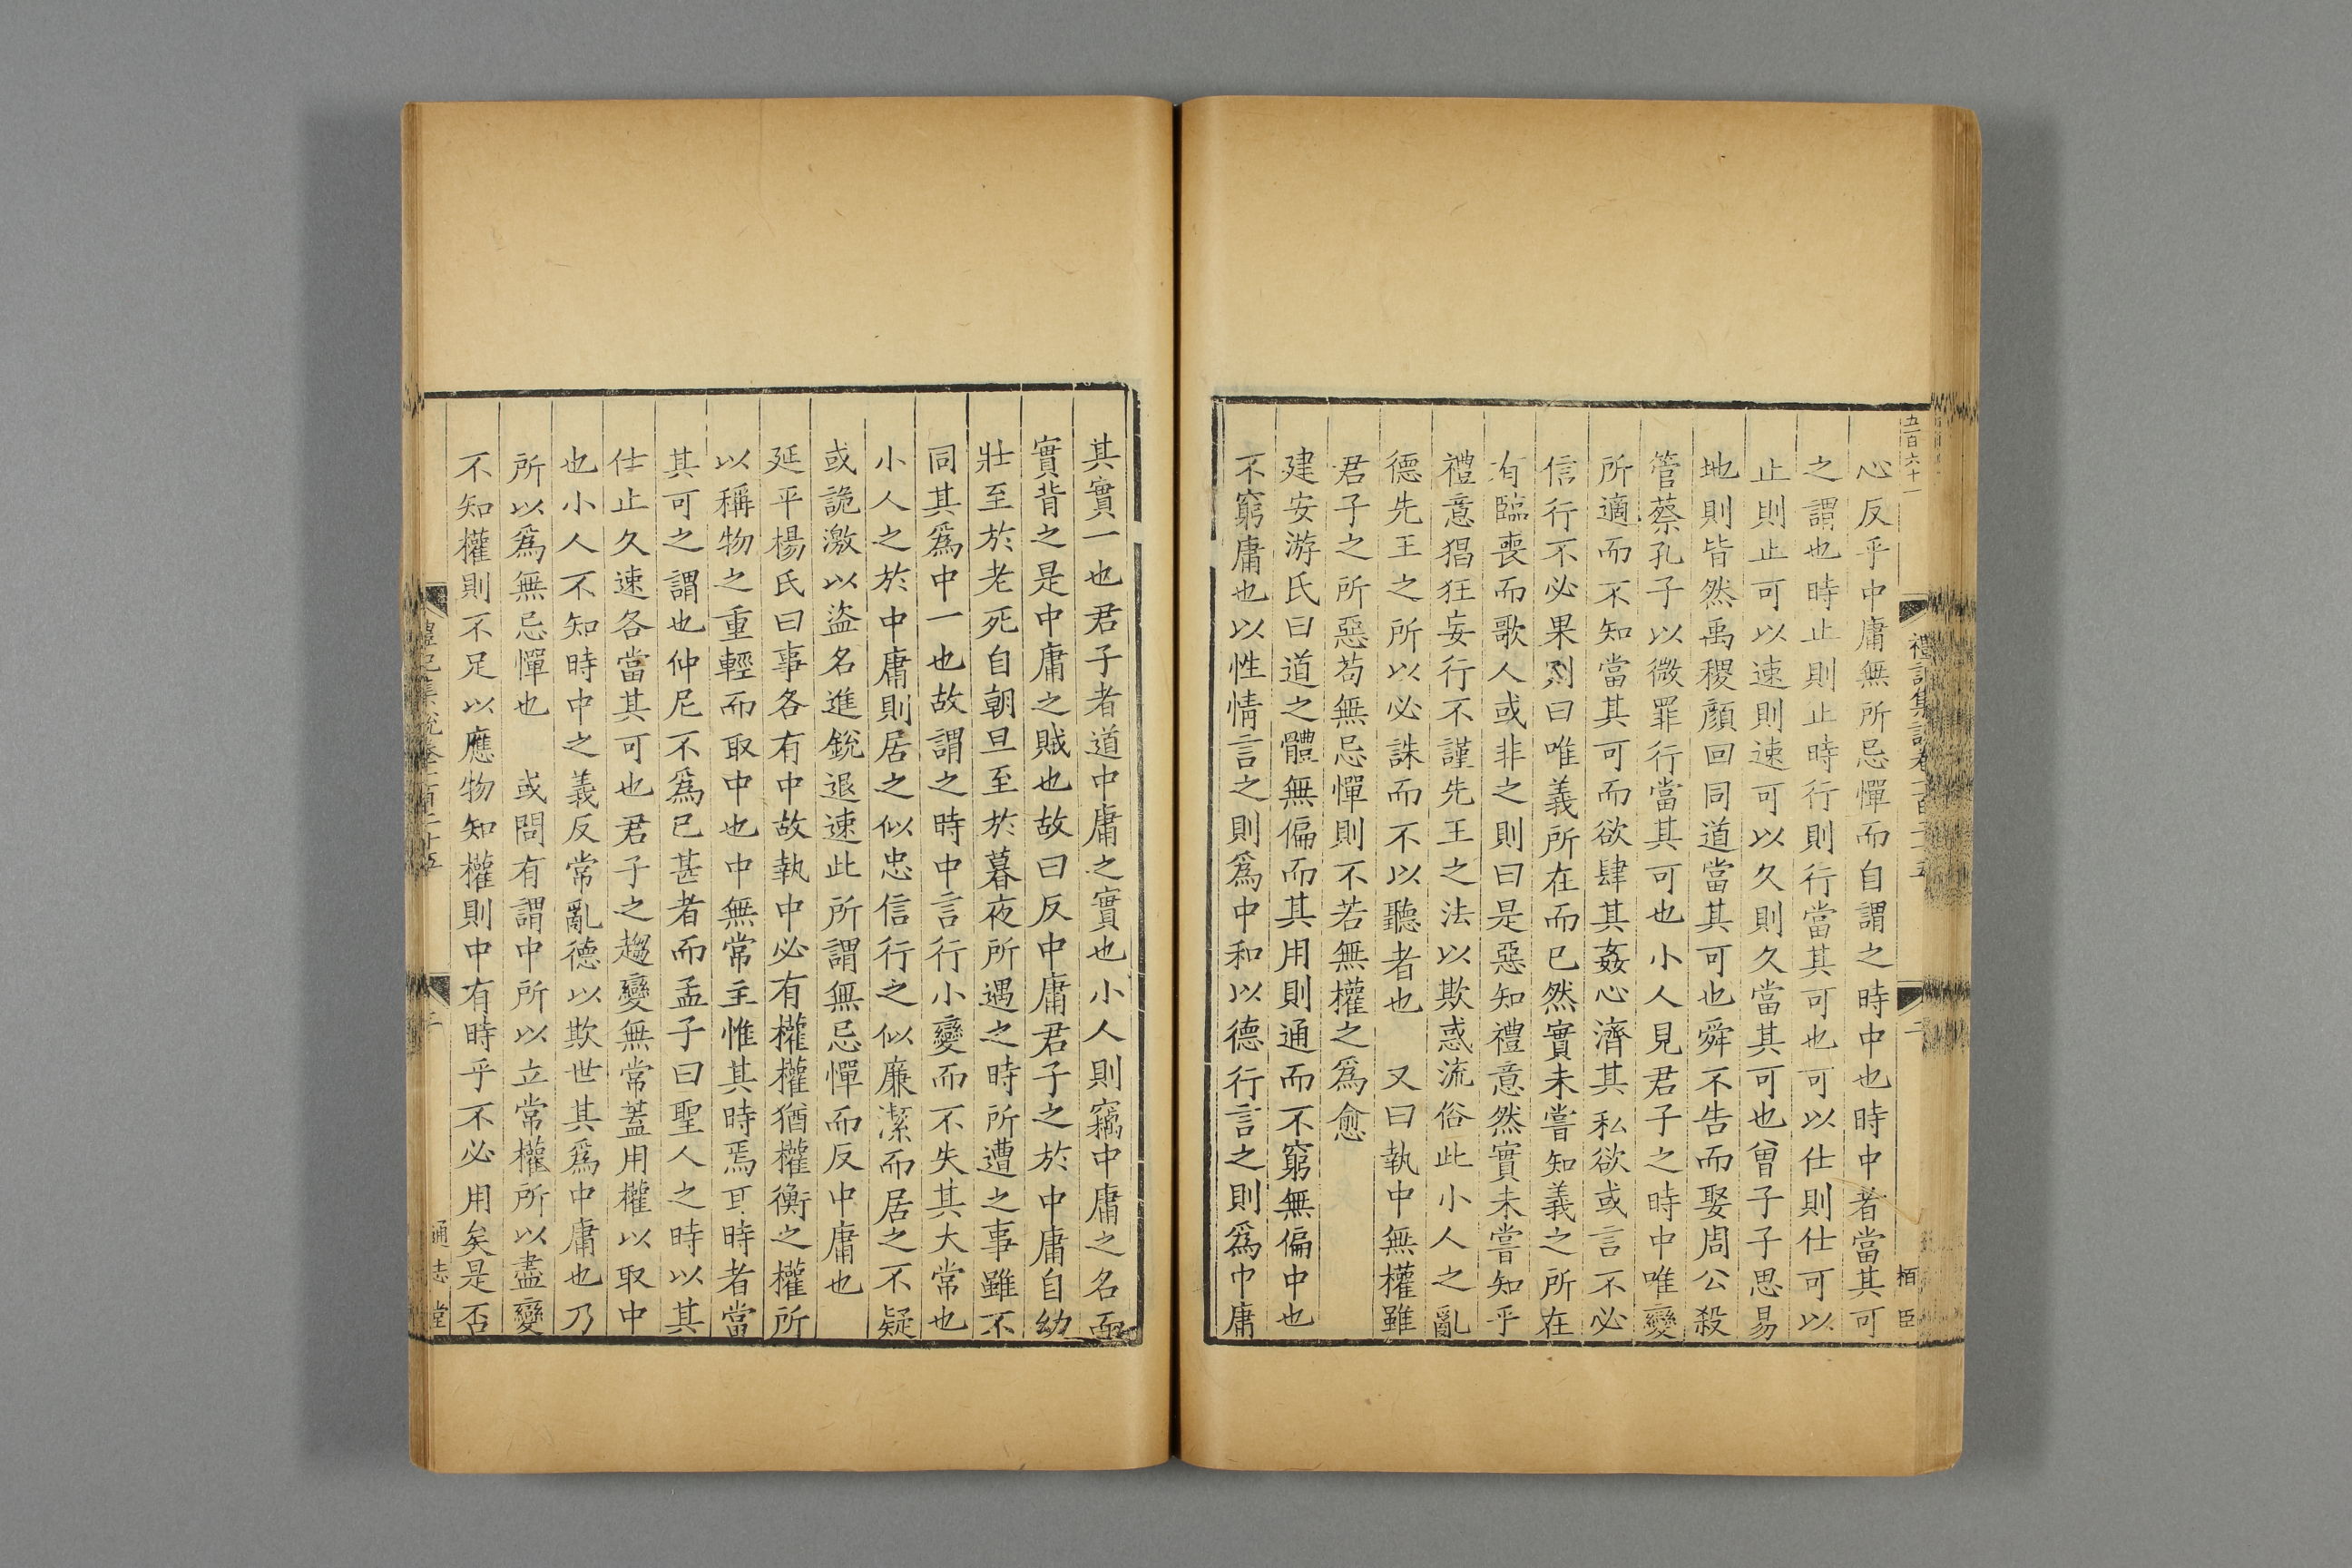 五百六十一
禮記集說卷一百二十五
二
栢臣
心反乎中庸無所忌憚而自謂之時中也時中者當其可
之謂也時止則止時行則行當其可也可以仕則仕可以
止則止可以速則速可以久則久當其可也曾子子思易
地則皆然禹稷顏回同道當其可也舜不告而娶周公殺
管蔡孔子以微罪行當其可也小人見君子之時中唯變
所適而不知當其可而欲肆其姦心濟其私欲或言不必
信行不必果則曰唯義所在而已然實未嘗知義之所在
有臨喪而歌人或非之則曰是惡知禮意然實未嘗知乎
禮意猖狂妄行不謹先王之法以欺惑流俗此小人之亂
德先王之所以必誅而不以聽者也 又曰執中無權雖
君子之所惡苟無忌憚則不若無權之爲愈
建安游氏曰道之體無偏而其用則通而不窮無偏中也
不窮庸也以性情言之則爲中和以德行言之則爲中庸
其實一也君子者道中庸之實也小人則竊中庸之名而
實背之是中庸之賊也故曰反中庸君子之於中庸自幼
壯至於老死自朝旦至於暮夜所遇之時所遭之事雖不
同其爲中一也故謂之時中言行小變而不失其大常也
小人之於中庸則居之似忠信行之似廉潔而居之不疑
或詭激以盜名進銳退速此所謂無忌憚而反中庸也
延平楊氏曰事各有中故執中必有權權猶權衡之權所
以稱物之重輕而取中也中無常主惟其時焉耳時者當
其可之謂也仲尼不爲已甚者而孟子曰聖人之時以其
仕止久速各當其可也君子之趨變無常蓋用權以取中
也小人不知時中之義反常亂德以欺世其爲中庸也乃
所以爲無忌憚也 或問有謂中所以立常權所以盡變
不知權則不足以應物知權則中有時乎不必用矣是否
禮記集說卷一百二十五
通志堂